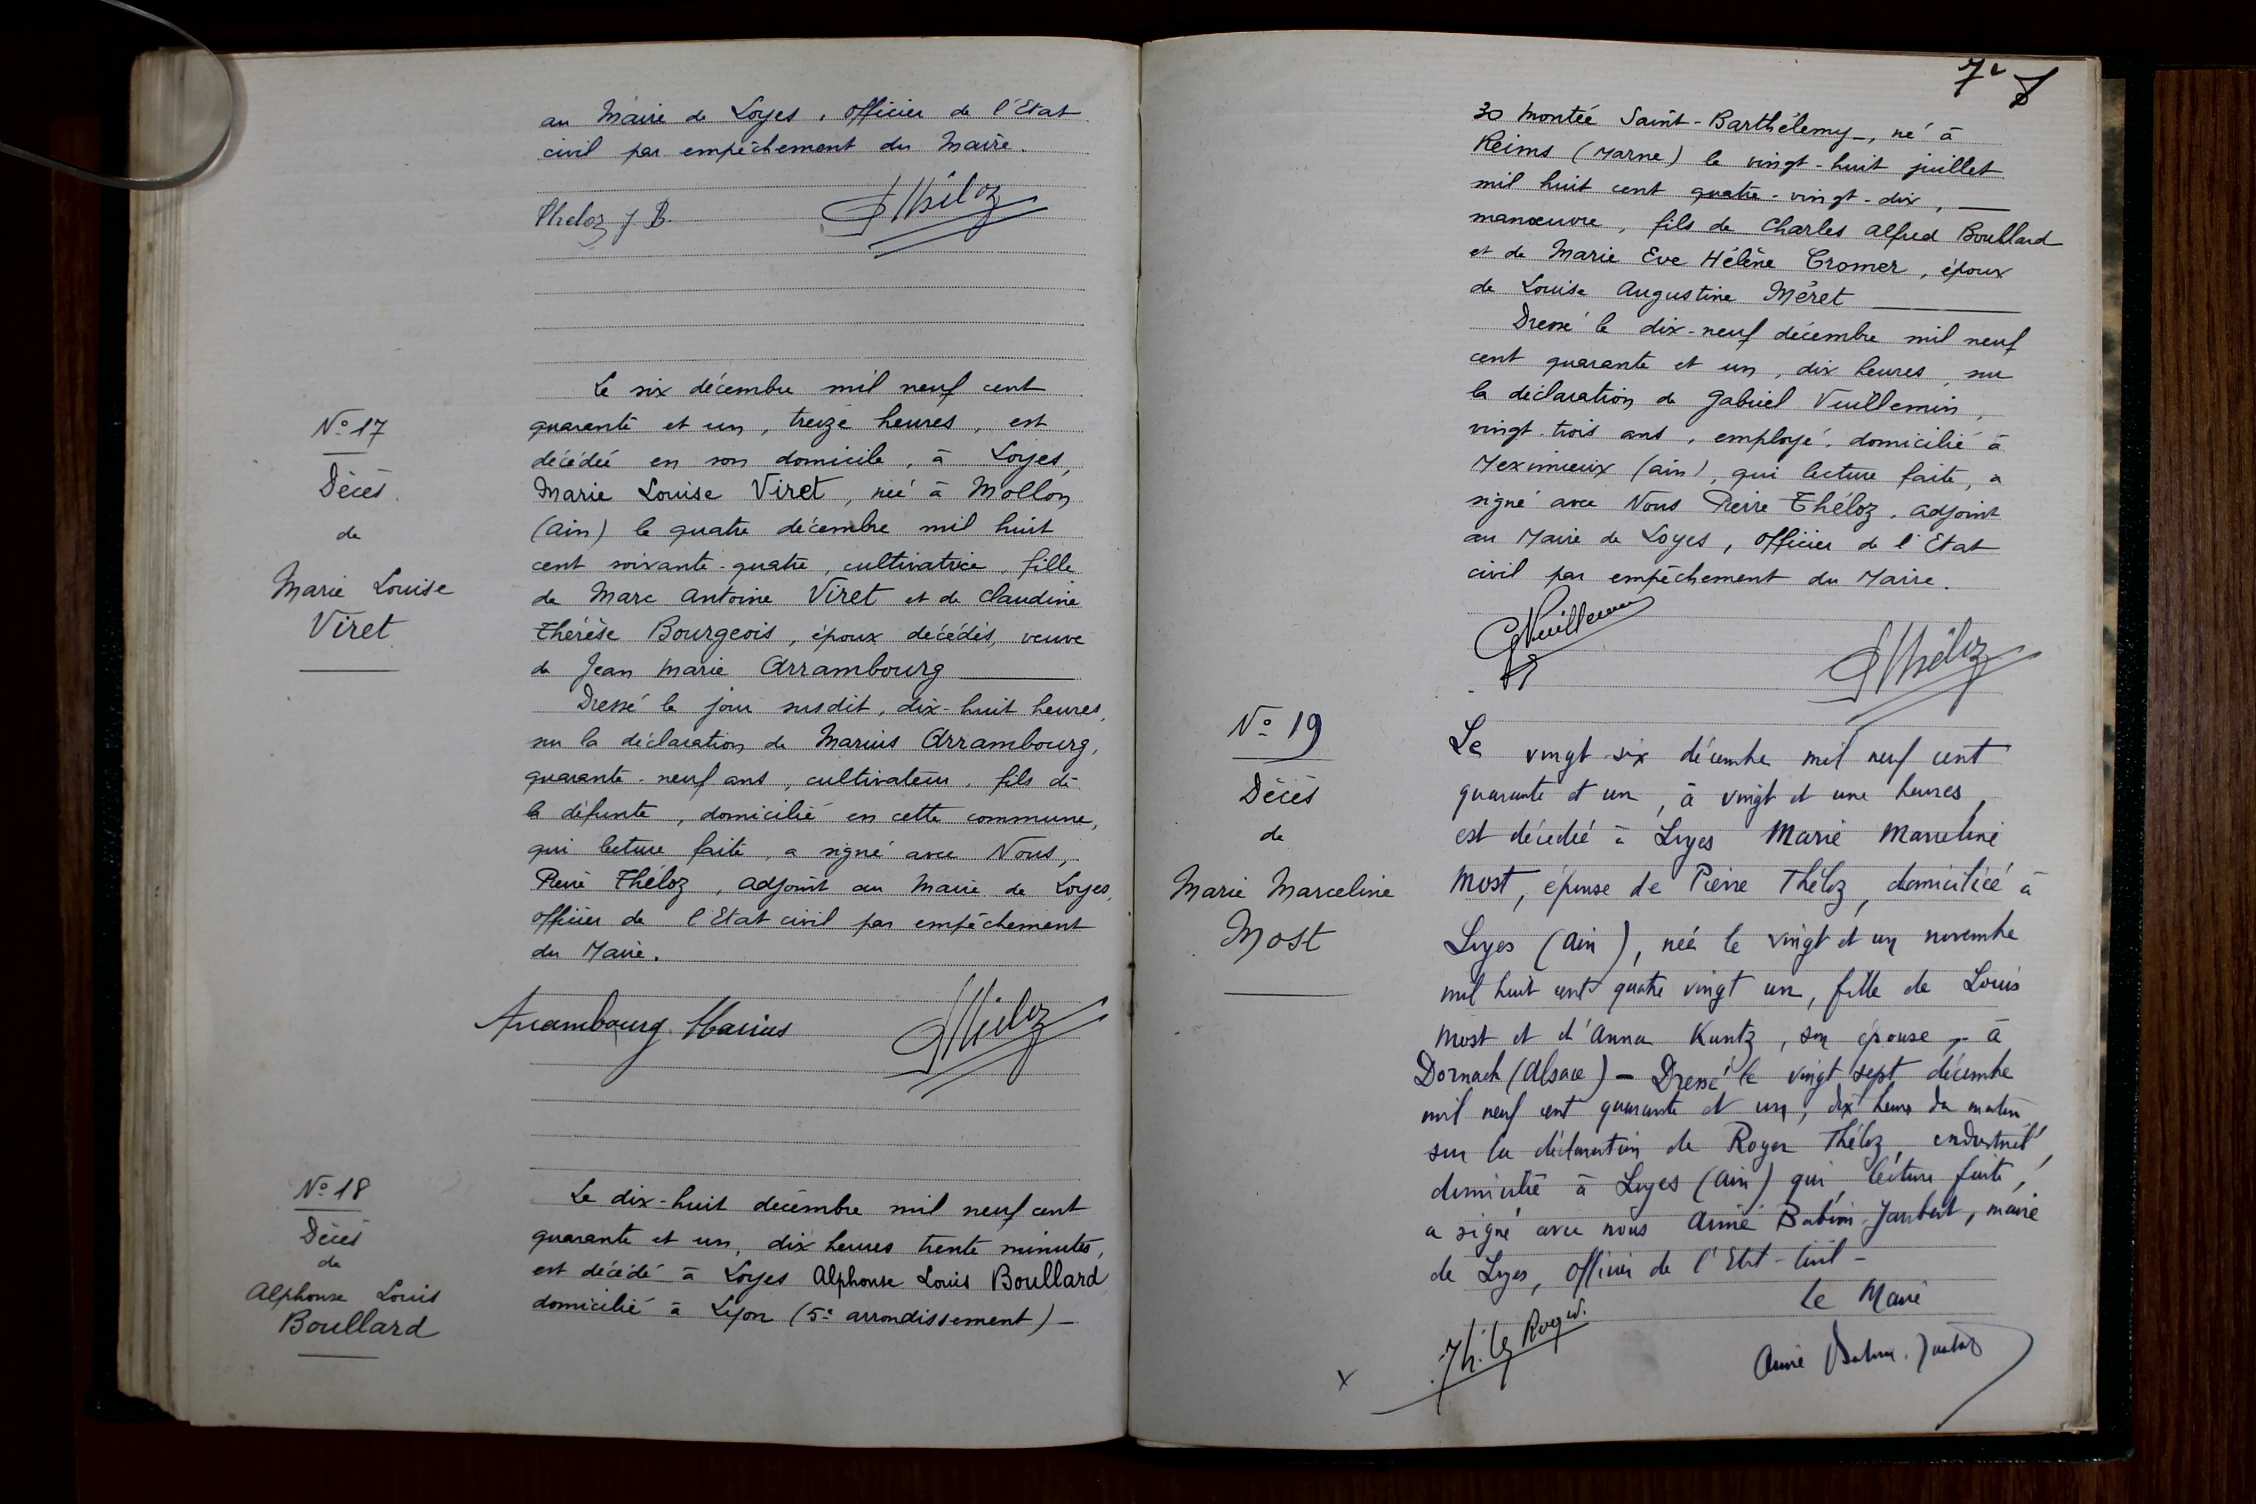 au Maire de Loyes, officier de l'Etat
civil par empêchement du Maire.
Theloz J. B.
PThéloz
N° 17
Décès
de
Marie Louise
Viret
Le six décembre mil neuf cent
quarante et un, treize heures, est
décédée en son domicile, à Loyes,
Marie Louise Viret, née à Mollon
(Ain) le quatre décembre mil huit
cent soixante-quatre, cultivatrice, fille
de Marc Antoine Viret et de Claudine
Thérèse Bourgeois, époux décédés, veuve
de Jean Marie Arrambourg
Dressé le jour susdit, dix-huit heures,
sur la déclaration de Marius Arrambourg,
quarante-neuf ans, cultivateur, fils de
la défunte, domicilié en cette commune,
qui lecture faite, a signé avec Nous,
Pierre Théloz, adjoint au Maire de Loyes,
officier de l'Etat civil par empêchement
du Maire.
Arrambourg Marius
PThéloz
N° 18
Décès
de
Alphonse Louis
Boullard
Le dix-huit décembre mil neuf cent
quarante et un, dix heures trente minutes,
est décédé à Loyes Alphonse Louis Boullard
domicilié à Lyon (5e arrondissement) —
30 Montée Saint-Barthélemy, né à
Reims (Marne) le vingt-huit juillet
mil huit cent quatre-vingt-dix, —
manœuvre, fils de Charles Alfred Boullard
et de Marie Eve Hélène Cromer, époux
de Louise Augustine Méret
Dressé le dix-neuf décembre mil neuf
cent quarante et un, dix heures, sur
la déclaration de Gabriel Vuillemin,
vingt-trois ans, employé, domicilié à
Meximieux (Ain), qui lecture faite, a
signé avec Nous Pierre Théloz, adjoint
au Maire de Loyes, officier de l'Etat
civil par empêchement du Maire.
GVuillemin
PThéloz
N° 19
Décès
de
Marie Marceline
Most
Le vingt-six décembre mil neuf cent
quarante et un, à vingt et une heures,
est décédée à Loyes Marie Marceline
Most, épouse de Pierre Théloz, domiciliée à
Loyes (Ain), née le vingt et un novembre
mil huit cent quatre vingt un, fille de Louis
Most et d'Anna Kuntz, son épouse, à
Dornach (Alsace) — Dressé le vingt sept décembre
mil neuf cent quarante et un, dix heures du matin
sur la déclaration de Roger Théloz, industriel,
domicilié à Loyes (Ain) qui, lecture faite,
a signé avec nous Aimé Babin-Jaubert, maire
de Loyes, officier de l'Etat-Civil —
Le Maire
Théloz Roger
Aimé Babin-Jaubert